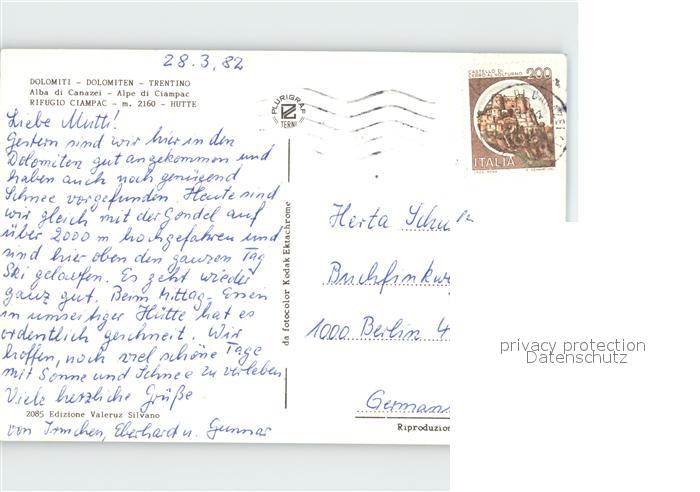 28.3.82
DOLOMITI - DOLOMITEN - TRENTINO
Alba di Canazei - Alpe di Ciampac
RIFUGIO CIAMPAC - m. 2160 - HÜTTE
Liebe Mutti!
Gestern sind wir hier in den
Dolomiten gut angekommen und
haben auch noch genügend
Schnee vorgefunden. Heute sind
wir gleich mit der Gondel auf
über 2000 m hochgefahren und
sind hier oben den ganzen Tag
Ski gelaufen. Es geht wieder
ganz gut. Beim Mittag-Essen
in umseitiger Hütte hat es
ordentlich geschneit. Wir
hoffen, noch viel schöne Tage
mit Sonne und Schnee zu verleben
Viele herzliche Grüße
2085 Edizione Valeruz Silvano
von Irmchen, Eberhard u. Gunnar
PLURIGRAF
TERNI
da fotocolor Kodak Ektachrome
CASTELLO DI
CERRO AL VOLTURNO
200
ITALIA
Herta
Buchfinkwe
1000 Berlin 4
German
Riproduzion
privacy protection
Datenschutz